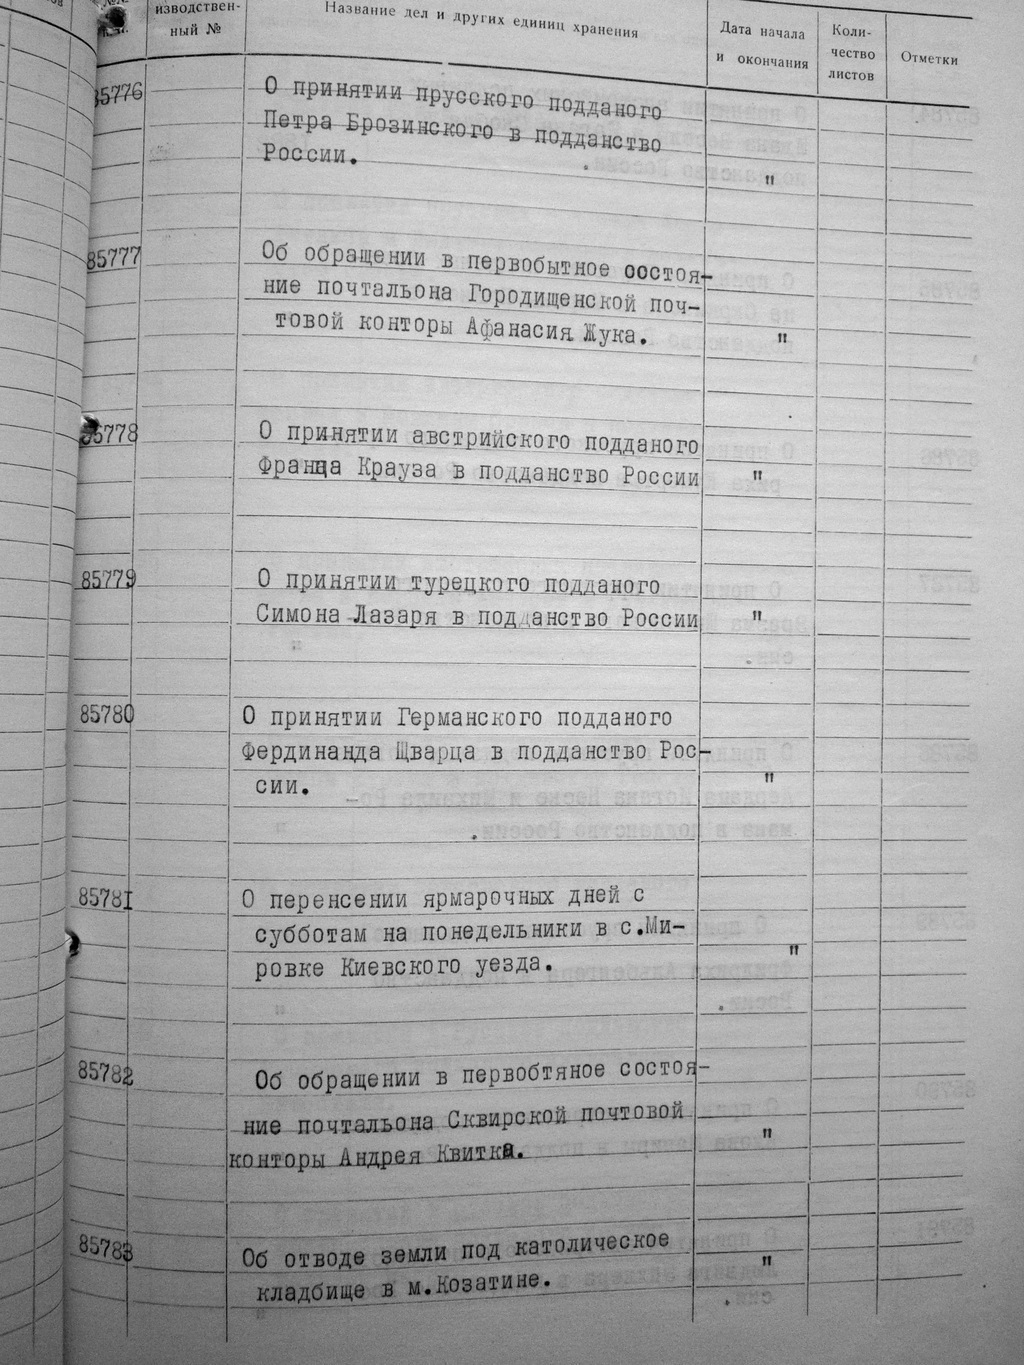 изводствен-
ный №
Название дел и других единиц хранения
Дата начала
и окончания
Коли-
чество
листов
Отметки
85776
О принятии прусского подданого
Петра Брозинского в подданство
России.
"
85777
Об обращении в первобытное состоя-
ние почтальона Городищенской поч-
товой конторы Афанасия Жука.
"
85778
О принятии австрийского подданого
Франца Крауза в подданство России
"
85779
О принятии турецкого подданого
Симона Лазаря в подданство России
"
85780
О принятии Германского подданого
Фердинанда Щварца в подданство Рос-
сии.
"
85781
О перенсении ярмарочных дней с
субботам на понедельники в с.Ми-
ровке Киевского уезда.
"
85782
Об обращении в первобтяное состоя-
ние почтальона Сквирской почтовой
конторы Андрея Квитка.
"
85783
Об отводе земли под католическое
кладбище в м.Козатине.
"